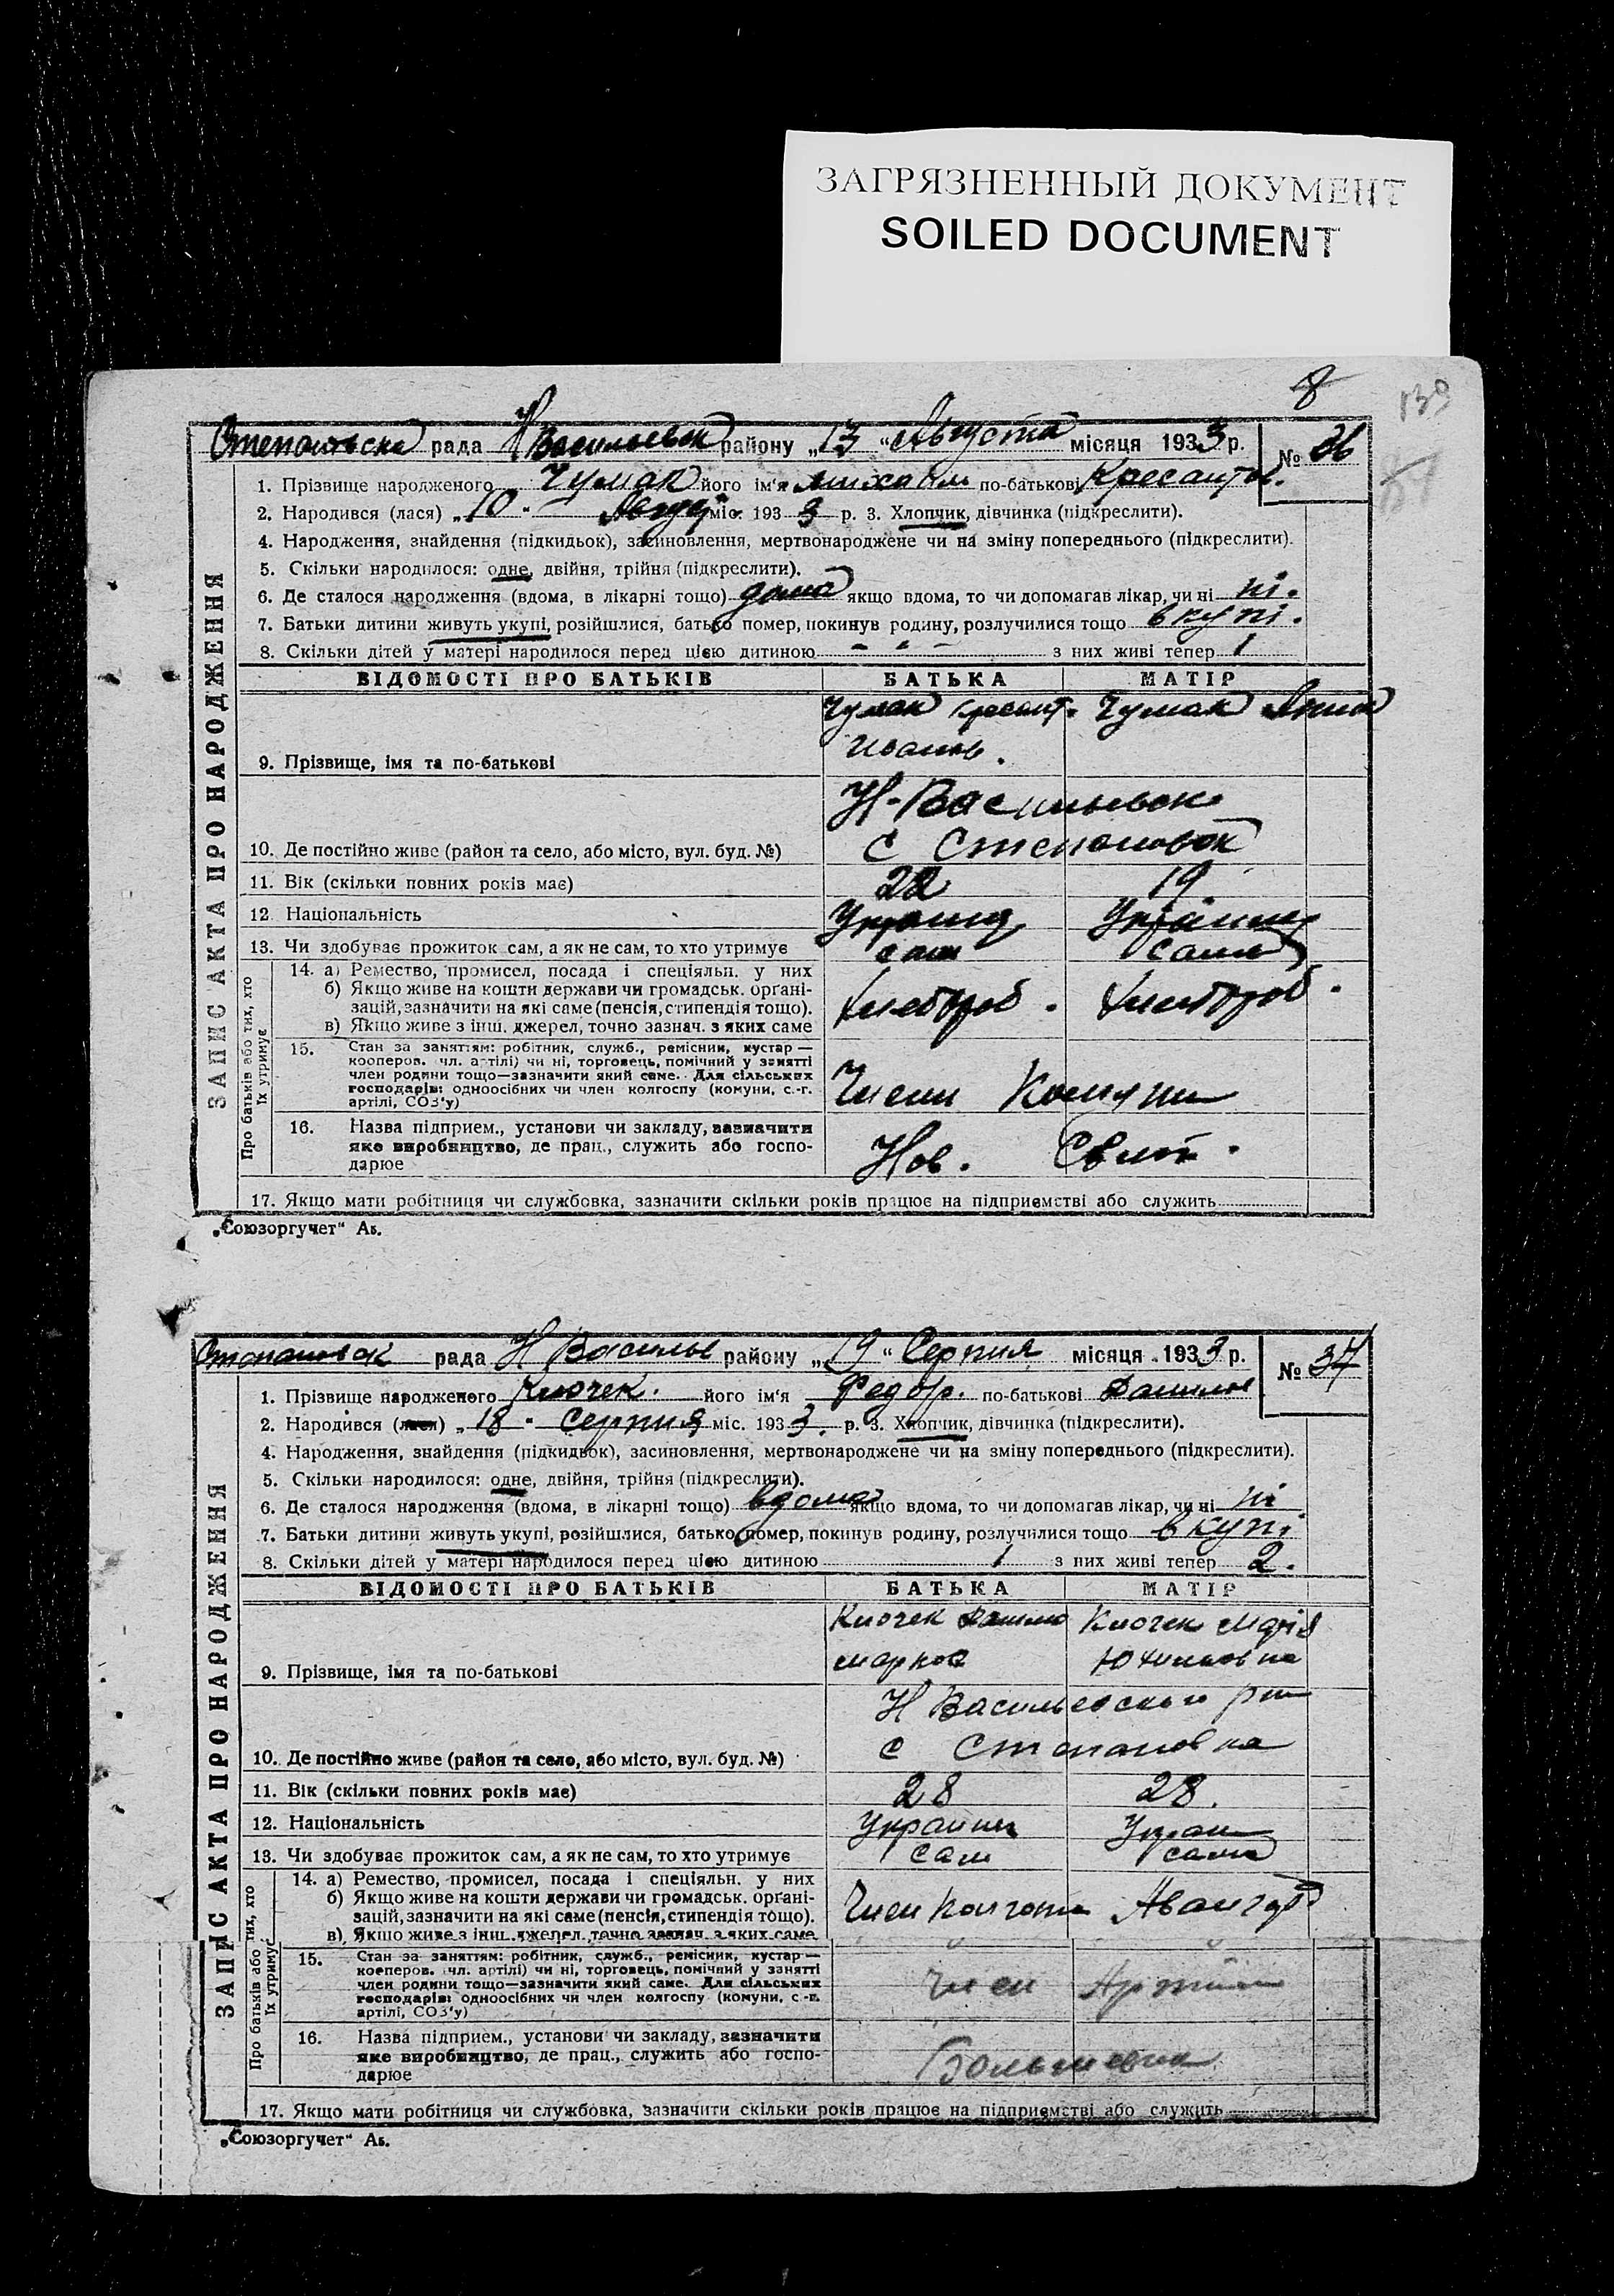 ЗАГРЯЗНЕННЫЙ ДОКУМЕНТ
SOILED DOCUMENT
8
139
рада Н Васильевск району „13 “ Августа місяця 1933 р. № 36
1. Прізвище народженого Чумак його ім'я Михаил по-батькові
2. Народився (лася) „10 “ Август міс. 193 3 р. 3. Хлопчик, дівчинка (підкреслити).
4. Народження, знайдення (підкидьок), засиновлення, мертвонароджене чи на зміну попереднього (підкреслити).
5. Скільки народилося: одне, двійня, трійня (підкреслити).
6. Де сталося народження (вдома, в лікарні тощо) дома якщо вдома, то чи допомагав лікар, чи ні ні.
7. Батьки дитини живуть укупі, розійшлися, батько помер, покинув родину, розлучилися тощо вкупі.
8. Скільки дітей у матері народилося перед цією дитиною - " - з них живі тепер 1
ВІДОМОСТІ ПРО БАТЬКІВ БАТЬКА МАТІР
Чумак Чумак Анна
9. Прізвище, імя та по-батькові Иванов.
Н-Васильевск
10. Де постійно живе (район та село, або місто, вул. буд. №) с Степановок
11. Вік (скільки повних років має) 22 19
12 Національність
13. Чи здобуває прожиток сам, а як не сам, то хто утримує сам сама
14. а) Ремество, промисел, посада і спеціяльн. у них
б) Якщо живе на кошти держави чи громадськ. органі-
зацій, зазначити на які саме (пенсія, стипендія тощо). Хлебороб. Хлебороб.
в) Якщо живе з інш. джерел, точно зазнач. з яких саме
15. Стан за заняттям: робітник, служб., ремісник, кустар —
кооперов. чл. артілі) чи ні, торговець, помічний у занятті
член родини тощо—зазначити який саме. Для сільських
господарів: одноосібних чи член колгоспу (комуни, с.-г.
артілі, СОЗ'у) Члени Комуни
16. Назва підприєм., установи чи закладу, зазначити
яке виробництво, де прац., служить або госпо-
дарює Нов. Свет.
17. Якщо мати робітниця чи службовка, зазначити скільки років працює на підприємстві або служить
ЗАПИС АКТА ПРО НАРОДЖЕННЯ
Про батьків або тих, хто
їх утримує
„Союзоргучет“ Аь.
Степановок рада Н Василье району „19 “ Серпня місяця 1933 р. № 37
1. Прізвище народженого Клочек. його ім'я Федор. по-батькові Данилов
2. Народився (лася) „18 “ Серпня міс. 193 3. р. 3. Хлопчик, дівчинка (підкреслити).
4. Народження, знайдення (підкидьок), засиновлення, мертвонароджене чи на зміну попереднього (підкреслити).
5. Скільки народилося: одне, двійня, трійня (підкреслити).
6. Де сталося народження (вдома, в лікарні тощо) вдома якщо вдома, то чи допомагав лікар, чи ні ні
7. Батьки дитини живуть укупі, розійшлися, батько помер, покинув родину, розлучилися тощо вкупі
8. Скільки дітей у матері народилося перед цією дитиною 1 з них живі тепер 2.
ВІДОМОСТІ ПРО БАТЬКІВ БАТЬКА МАТІР
Клочек Данило Клочек Марія
9. Прізвище, імя та по-батькові Марков Юхимовна
Н Васильевского рай
10. Де постійно живе (район та село, або місто, вул. буд. №) с Степановка
11. Вік (скільки повних років має) 28 28.
12. Національність
13. Чи здобуває прожиток сам, а як не сам, то хто утримує Сам сама
14. а) Ремество, промисел, посада і спеціяльн. у них
б) Якщо живе на кошти держави чи громадськ. органі-
зацій, зазначити на які саме (пенсія, стипендія тощо). Член
в) Якщо живе з інш. джерел, точно зазнач. з яких саме
15. Стан за заняттям: робітник, служб., ремісник, кустар —
кооперов. чл. артілі) чи ні, торговець, помічний у занятті
член родини тощо—зазначити який саме. Для сільських
господарів: одноосібних чи член колгоспу (комуни, с.-г.
артілі, СОЗ'у) Член Артели
16. Назва підприєм., установи чи закладу, зазначити
яке виробництво, де прац., служить або госпо-
дарює Большевик
17. Якщо мати робітниця чи службовка, зазначити скільки років працює на підприємстві або служить
ЗАПИС АКТА ПРО НАРОДЖЕННЯ
Про батьків або тих, хто
їх утримує
„Союзоргучет“ Аь.